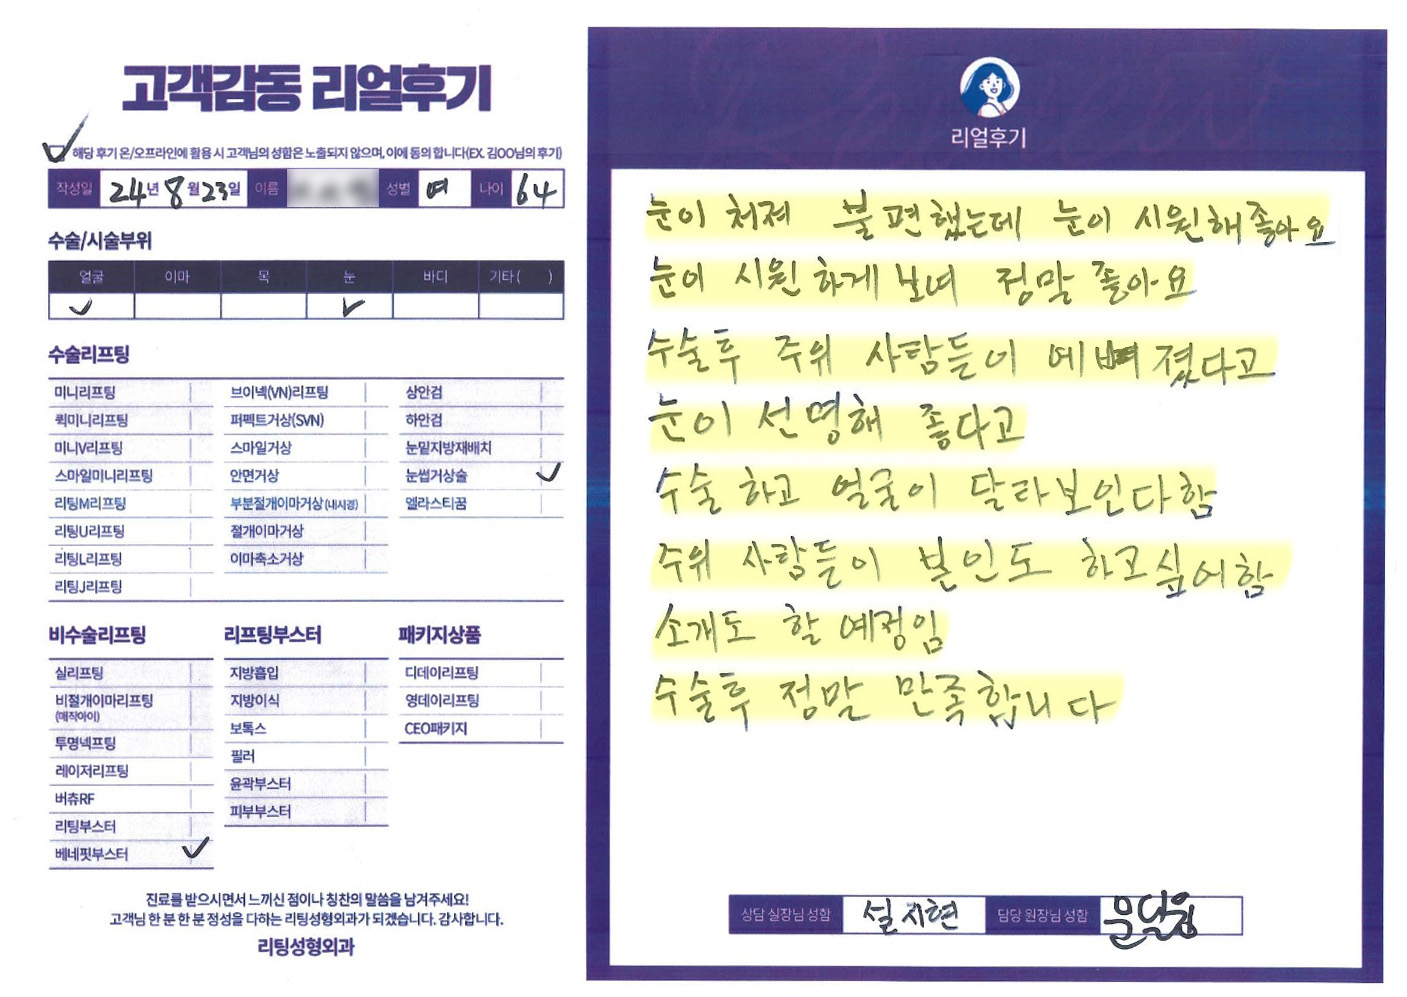 고객감동 리얼후기
✓ 해당 후기 온/오프라인에 활용 시 고객님의 성함은 노출되지 않으며, 이에 동의 합니다(EX. 김OO님의 후기)
작성일 24년 8월 23일 이름 성별 여 나이 64
수술/시술부위
얼굴 이마 목 눈 바디 기타( )
✓ ✓
수술리프팅
미니리프팅 브이넥(VN)리프팅 상안검
퀵미니리프팅 퍼펙트거상(SVN) 하안검
미니V리프팅 스마일거상 눈밑지방재배치
스마일미니리프팅 안면거상 눈썹거상술 ✓
리팅M리프팅 부분절개이마거상(내시경) 엘라스티꿈
리팅U리프팅 절개이마거상
리팅L리프팅 이마축소거상
리팅J리프팅
비수술리프팅 리프팅부스터 패키지상품
실리프팅 지방흡입 디데이리프팅
비절개이마리프팅 지방이식 영데이리프팅
(매직아이) 보톡스 CEO패키지
투명넥프팅 필러
레이저리프팅 윤곽부스터
버츄RF 피부부스터
리팅부스터
베네핏부스터 ✓
진료를 받으시면서 느끼신 점이나 칭찬의 말씀을 남겨주세요!
고객님 한 분 한 분 정성을 다하는 리팅성형외과가 되겠습니다. 감사합니다.
리팅성형외과
리얼후기
눈이 처져 불편했는데 눈이 시원해 좋아요
눈이 시원하게 보여 정말 좋아요
수술후 주위 사람들이 예뻐졌다고
눈이 선명해 좋다고
수술하고 얼굴이 달라보인다함
주위 사람들이 본인도 하고싶어함
소개도 할 예정임
수술후 정말 만족합니다
상담 실장님 성함 설지현 담당 원장님 성함